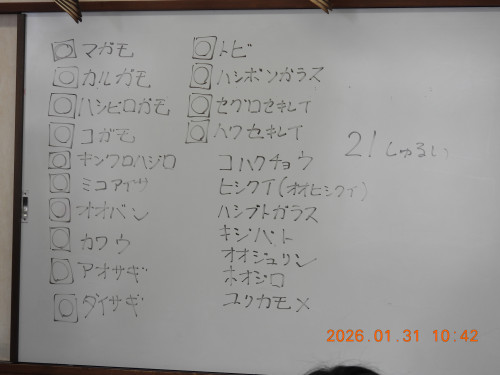 マガモ
カルガモ
ハシビロガモ
コガモ
ホシハジロ
ミコアイサ
オオバン
カワウ
アオサギ
ダイサギ
トビ
ハシボソガラス
セグロセキレイ
ハクセキレイ
コハクチョウ
ヒシクイ(オオヒシクイ)
ハシブトガラス
キジバト
オオジュリン
ホオジロ
ユリカモメ
21しゅるい
2026.01.31 10:42